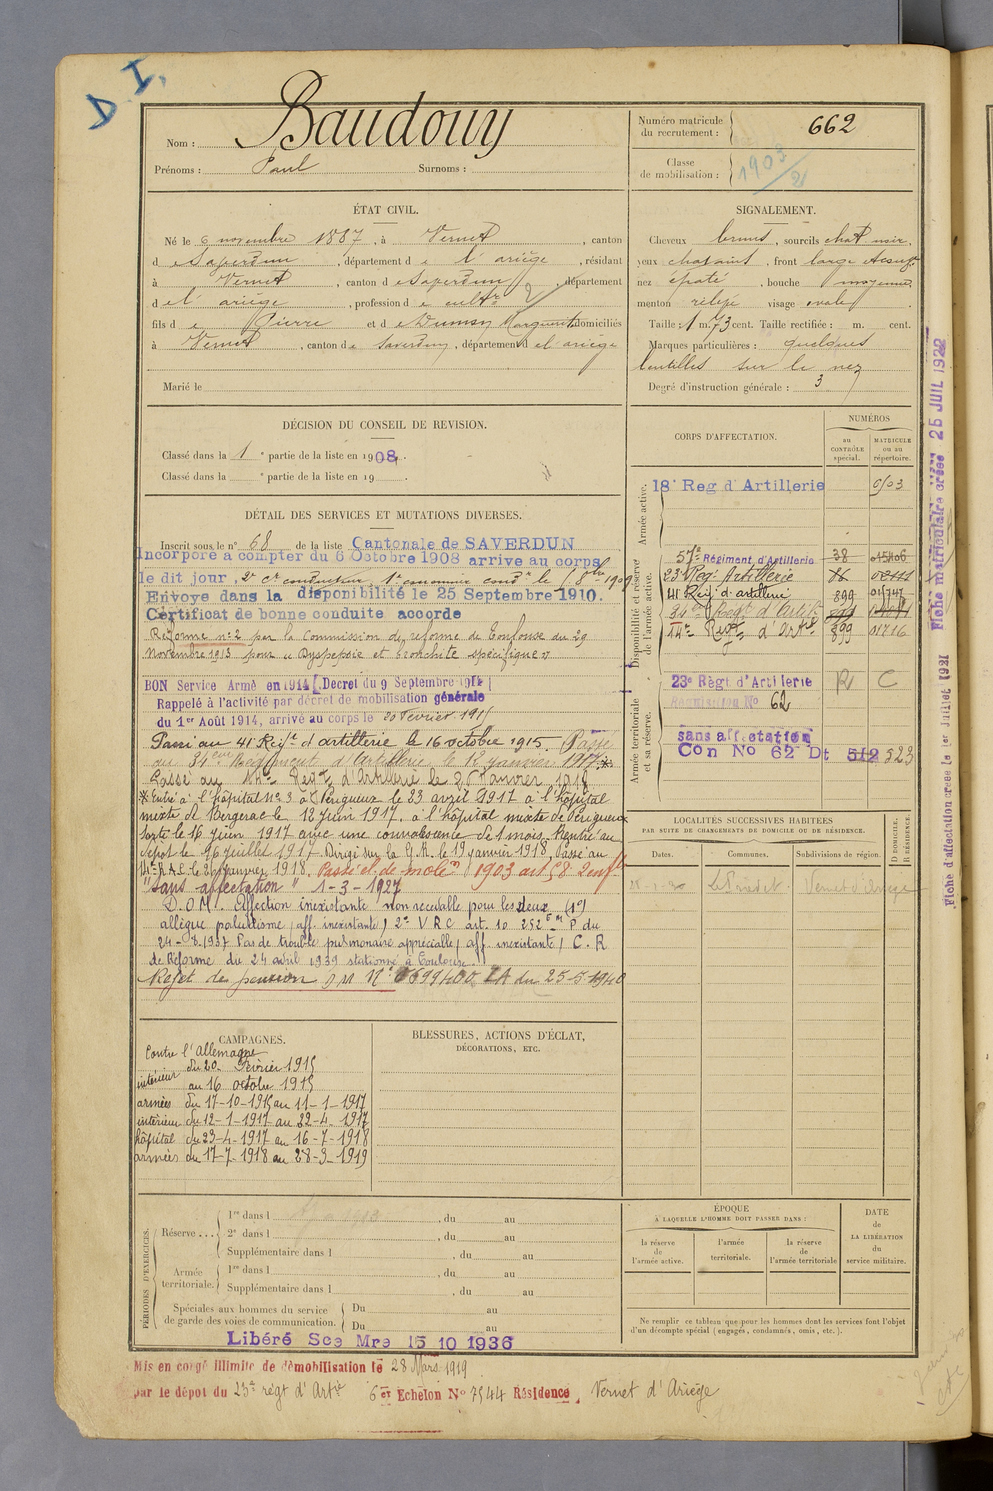 D I.
Nom : Baudouy
Prénoms : Paul Surnoms :
Numéro matricule du recrutement : 662
Classe de mobilisation : 1903/2
ÉTAT CIVIL.
Né le 6 novembre 1887, à Vernet, canton
de Saverdun, département de l'ariège, résidant
à Vernet, canton de Saverdun, département
de l'ariège, profession de cultr 2
fils de Pierre et de Dumay Marguerite domiciliés
à Vernet, canton de Saverdun, département de l'ariège
Marié le
SIGNALEMENT.
Cheveux bruns, sourcils chat noir,
yeux chatains, front large
nez épaté, bouche moyenne,
menton relevé visage ovale
Taille : 1 m. 73 cent. Taille rectifiée : m. cent.
Marques particulières : quelques
lentilles sur le nez
Degré d'instruction générale : 3
DÉCISION DU CONSEIL DE REVISION.
Classé dans la 1e partie de la liste en 1908.
Classé dans la e partie de la liste en 19 .
DÉTAIL DES SERVICES ET MUTATIONS DIVERSES.
Inscrit sous le n° 68 de la liste Cantonale de SAVERDUN
Incorporé à compter du 6 Octobre 1908 arrivé au corps
le dit jour, 2e cr conducteur, 1r cond le 1909
Envoyé dans la disponibilité le 25 Septembre 1910.
Certificat de bonne conduite accordé
Réformé n° 2 par la Commission de réforme de Toulouse du 29
Novembre 1913 pour "Dyspepsie et bronchite spécifique"
BON Service Armé en 1914 [Decret du 9 Septembre 1914]
Rappelé à l'activité par décret de mobilisation générale
du 1er Août 1914, arrivé au corps le 20 Février 1915
Passé au 41e Regt d'artillerie le 16 octobre 1915. Passé
au 34ème Régiment d'Artillerie le 12 janvier 1917. *
Passé au 14e Regt d'Artillerie le 26 Janvier 1918
* Entré à l'hôpital N° 3 à Périgueux le 23 avril 1917 à l'hôpital
mixte de Bergerac le 12 juin 1917. à l'hôpital mixte de Périgueux
sorti le 16 juin 1917 avec une convalescence de 1 mois. Rentré au
dépôt le 26 juillet 1917. Dirigé sur la G.A. le 19 janvier 1918, Passé au
14e R.A.C. le 26 janvier 1918. Passé cl. de mobon 1903 art 58 2 enfts
"Sans affectation" 1-3-1927
D.O.M. Affection inexistante non recevable pour les deux (1°)
allègue paludisme (aff. inexistante) 2° V R C art. 10 252 P du
24-8.1937 Pas de trouble pulmonaire appréciable (aff. inexistante) C.R
de Réforme du 24 avril 1939 stationné à Toulouse.
Rejet de pension D M N° 6699400 LA du 25-5-1940
CORPS D'AFFECTATION.
NUMÉROS
au CONTRÔLE spécial.
MATRICULE ou au répertoire.
Armée active.
18e Reg d'Artillerie 0/03
Disponibilité et réserve de l'armée active.
57e Régiment d'Artillerie 38 015406
23e Reg. Artillerie
41 Reg d'artillerie 299 01747
34e Regt d'Artie
14e Regt d'Artie 899 01716
Armée territoriale et sa réserve.
23e Régt d'Artillerie R C
Réquisition N° 62
sans affectation
Con No 62 Dt 512 523
LOCALITÉS SUCCESSIVES HABITÉES
PAR SUITE DE CHANGEMENTS DE DOMICILE OU DE RÉSIDENCE.
Dates. Communes. Subdivisions de région. D DOMICILE. R RÉSIDENCE.
Vernet d'Ariège
CAMPAGNES.
Contre l'Allemagne
intérieur du 20 Février 1915
au 16 octobre 1915
armées du 17-10-1915 au 11-1-1917
intérieur du 12-1-1917 au 22-4-1917
hôpital du 23-4-1917 au 16-7-1918
armées du 17-7-1918 au 28-3-1919
BLESSURES, ACTIONS D'ÉCLAT,
DÉCORATIONS, ETC.
PÉRIODES D'EXERCICES.
Réserve ... 1re dans l , du au
2e dans l , du au
Supplémentaire dans l , du au
Armée territoriale. 1re dans l , du au
Supplémentaire dans l , du au
Spéciales aux hommes du service de garde des voies de communication. Du au
Du au
ÉPOQUE
À LAQUELLE L'HOMME DOIT PASSER DANS :
la réserve de l'armée active. l'armée territoriale. la réserve de l'armée territoriale
DATE de LA LIBÉRATION du service militaire.
Ne remplir ce tableau que pour les hommes dont les services font l'objet
d'un décompte spécial (engagés, condamnés, omis, etc.).
Libéré Sce Mre 15 10 1936
Mis en congé illimité de démobilisation le 28 Mars 1919
par le dépot du 23e régt d'Artie 6er Echelon N° 7544 Résidence, Vernet d'Ariège
Fiche matriculaire créée 25 JUIL 1922
Fiche d'affectation créée le 1er Juillet 1921